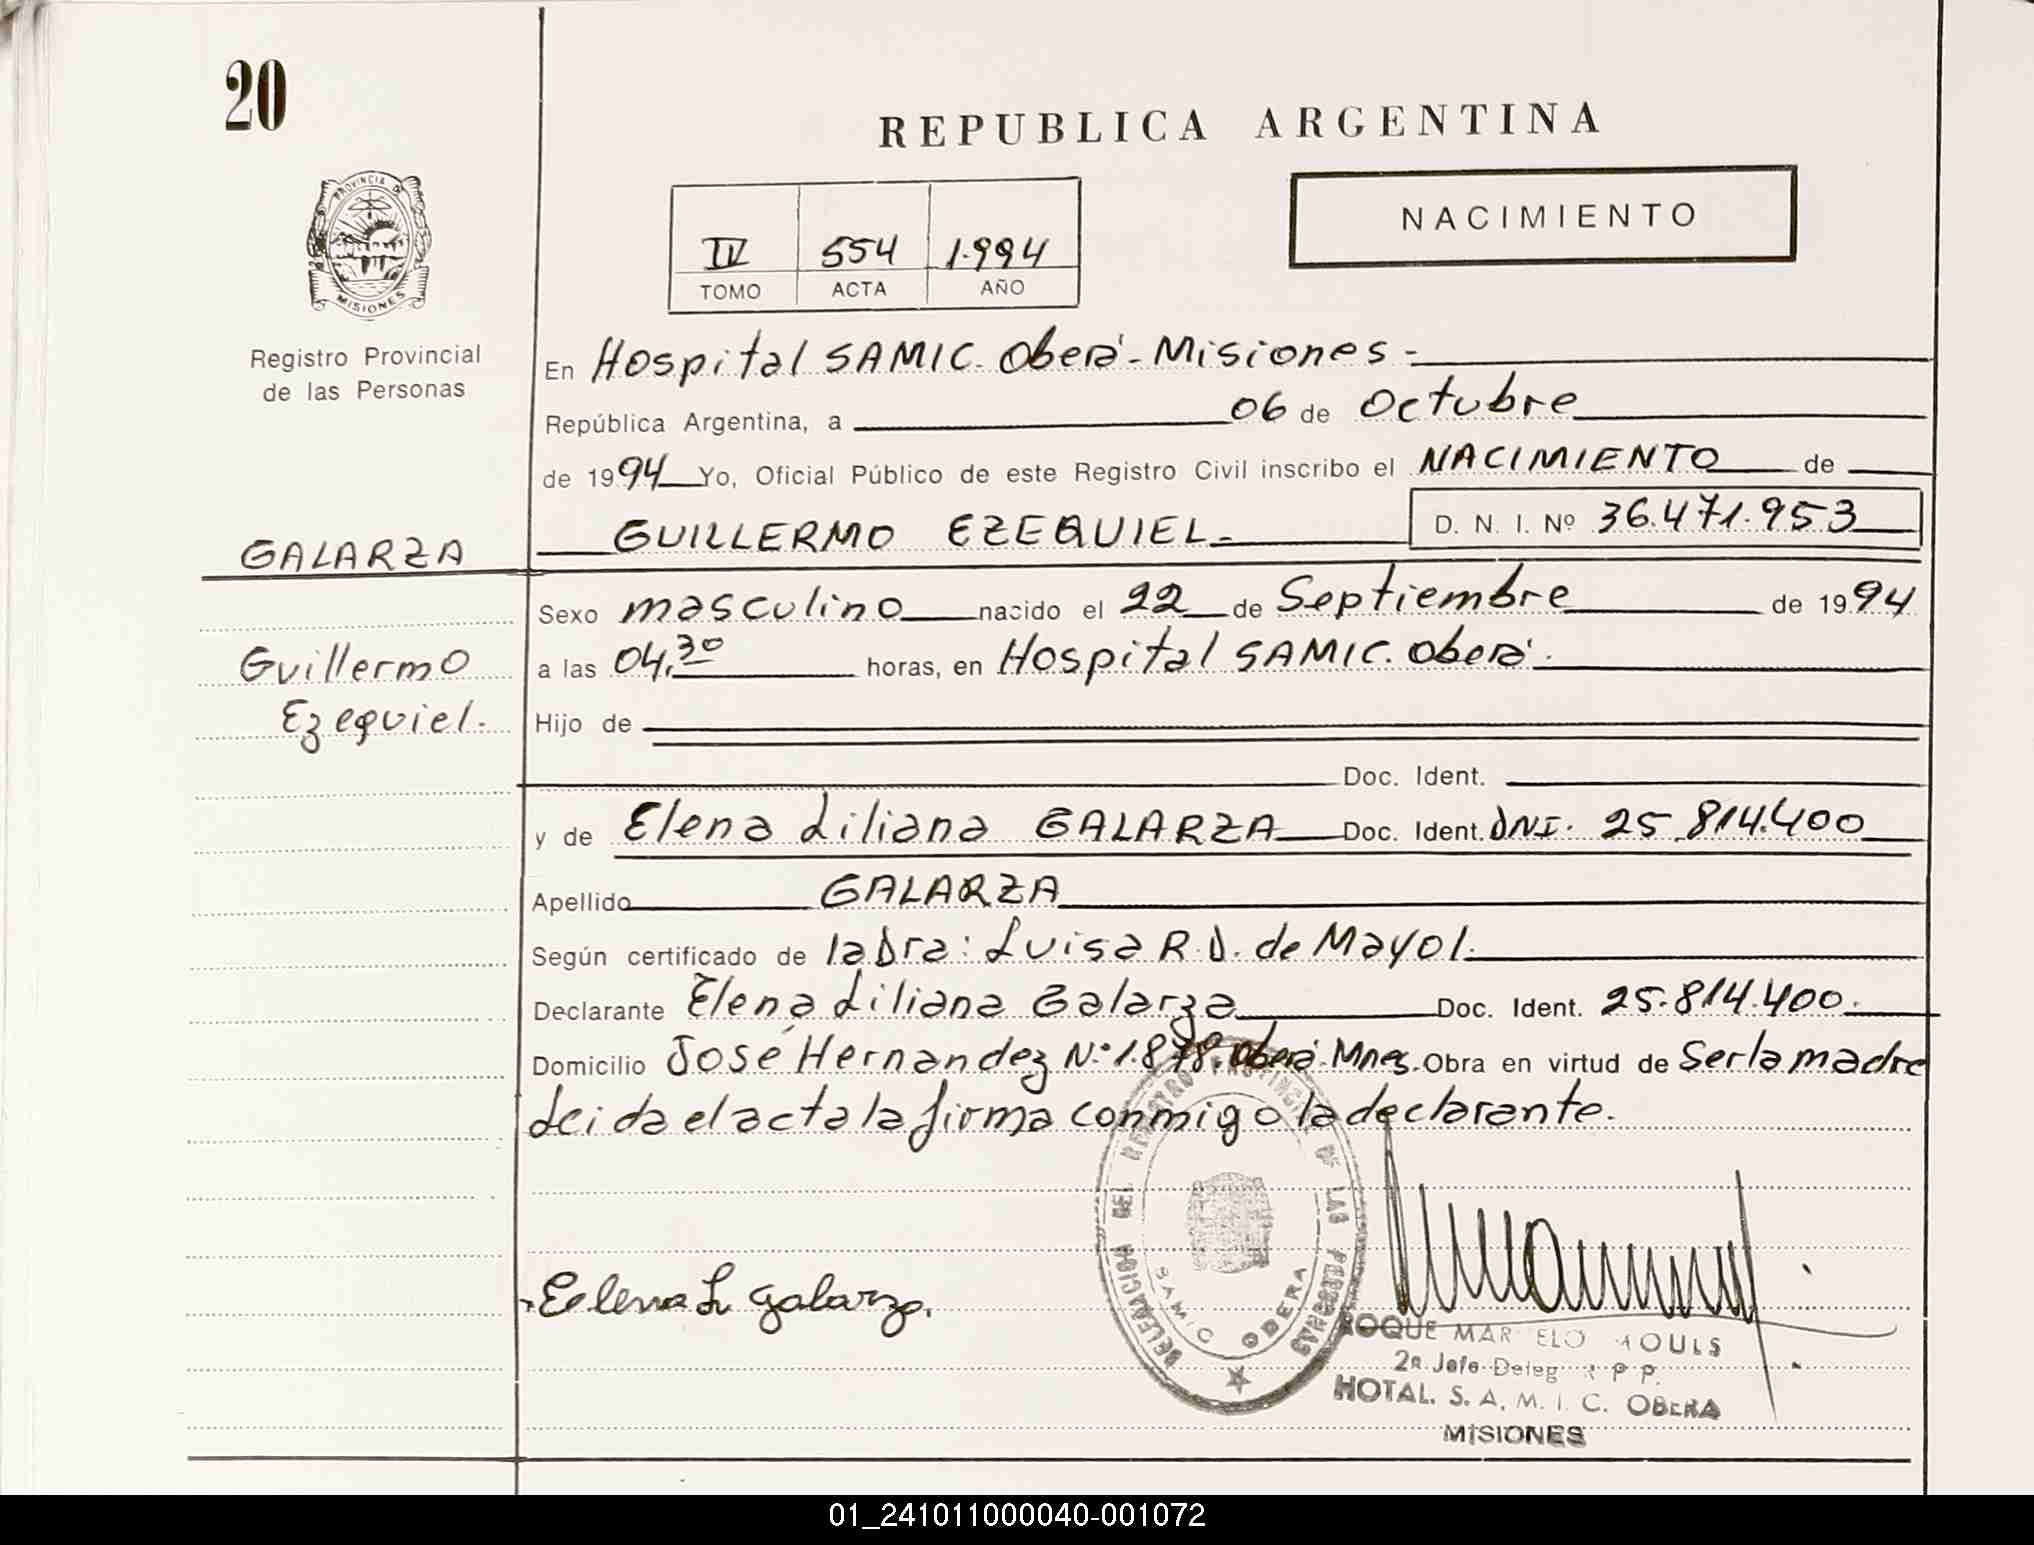 20
REPUBLICA ARGENTINA
PROVINCIA DE
MISIONES
NACIMIENTO
IV 554 1.994
TOMO ACTA AÑO
Registro Provincial
de las Personas
En Hospital SAMIC. Oberá - Misiones -
República Argentina, a 06 de Octubre
de 1994 Yo, Oficial Público de este Registro Civil inscribo el NACIMIENTO de
GALARZA
GUILLERMO EZEQUIEL - D. N. I. Nº 36.471.953
Sexo masculino nacido el 22 de Septiembre de 1994
Guillermo
Ezequiel.
a las 04,30 horas, en Hospital SAMIC. Oberá.
Hijo de
Doc. Ident.
y de Elena Liliana GALARZA Doc. Ident. DNI. 25.814.400
Apellido GALARZA
Según certificado de la Dra: Luisa R. D. de Mayol.
Declarante Elena Liliana Galarza Doc. Ident. 25.814.400.
Domicilio José Hernandez N.º 1.878. Oberá. Mnes. Obra en virtud de Ser la madre
Leida el acta la firma conmigo la declarante.
DELEGACION DEL REGISTRO PROVINCIAL DE LAS PERSONAS
SAMIC OBERA
Elena L Galarza.
ROQUE
2º Jefe Deleg R P P.
HOTAL. S. A. M. I. C. OBERA
MISIONES
01_241011000040-001072